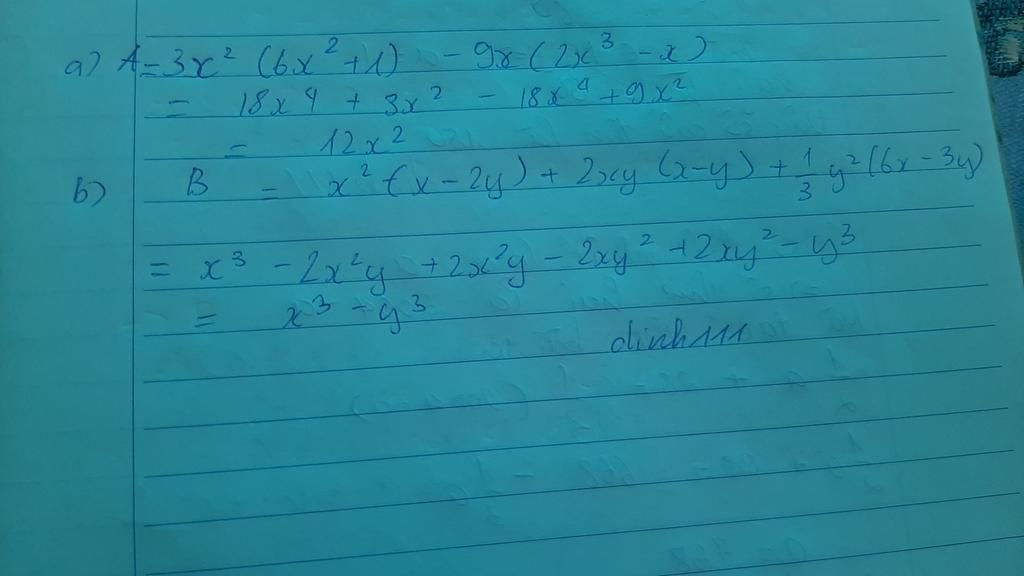 a) A = 3x² (6x² + 1) - 9x (2x³ - x)
= 18x⁴ + 3x² - 18x⁴ + 9x²
= 12x²
b) B = x² (x - 2y) + 2xy (x - y) + 1/3 y² (6x - 3y)
= x³ - 2x²y + 2x²y - 2xy² + 2xy² - y³
= x³ - y³
dinh111